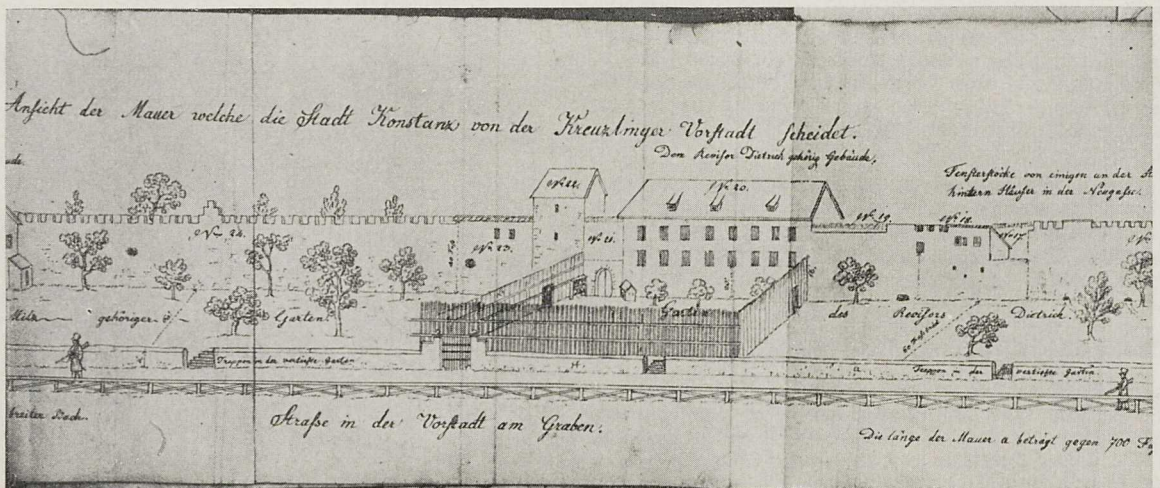 Ansicht der Mauer welche die Stadt Konstanz von der Kreuzlinger Vorstadt scheidet.
Dem Revisor Dietrich gehörig Gebäude,
Fensterstöcke von einigen an der St
hintern Häuser in der Neugasse.
No 22.
No 20.
No 19.
No 18.
No 17.
No 24.
No 23.
No 21.
gehöriger
Garten
Garten
des Revisors Dietrich.
Treppen in der vertiefte Garten.
Treppen in der vertiefte Garten.
breiter Bach.
Strasse in der Vorstadt am Graben.
Die länge der Mauer a beträgt gegen 700